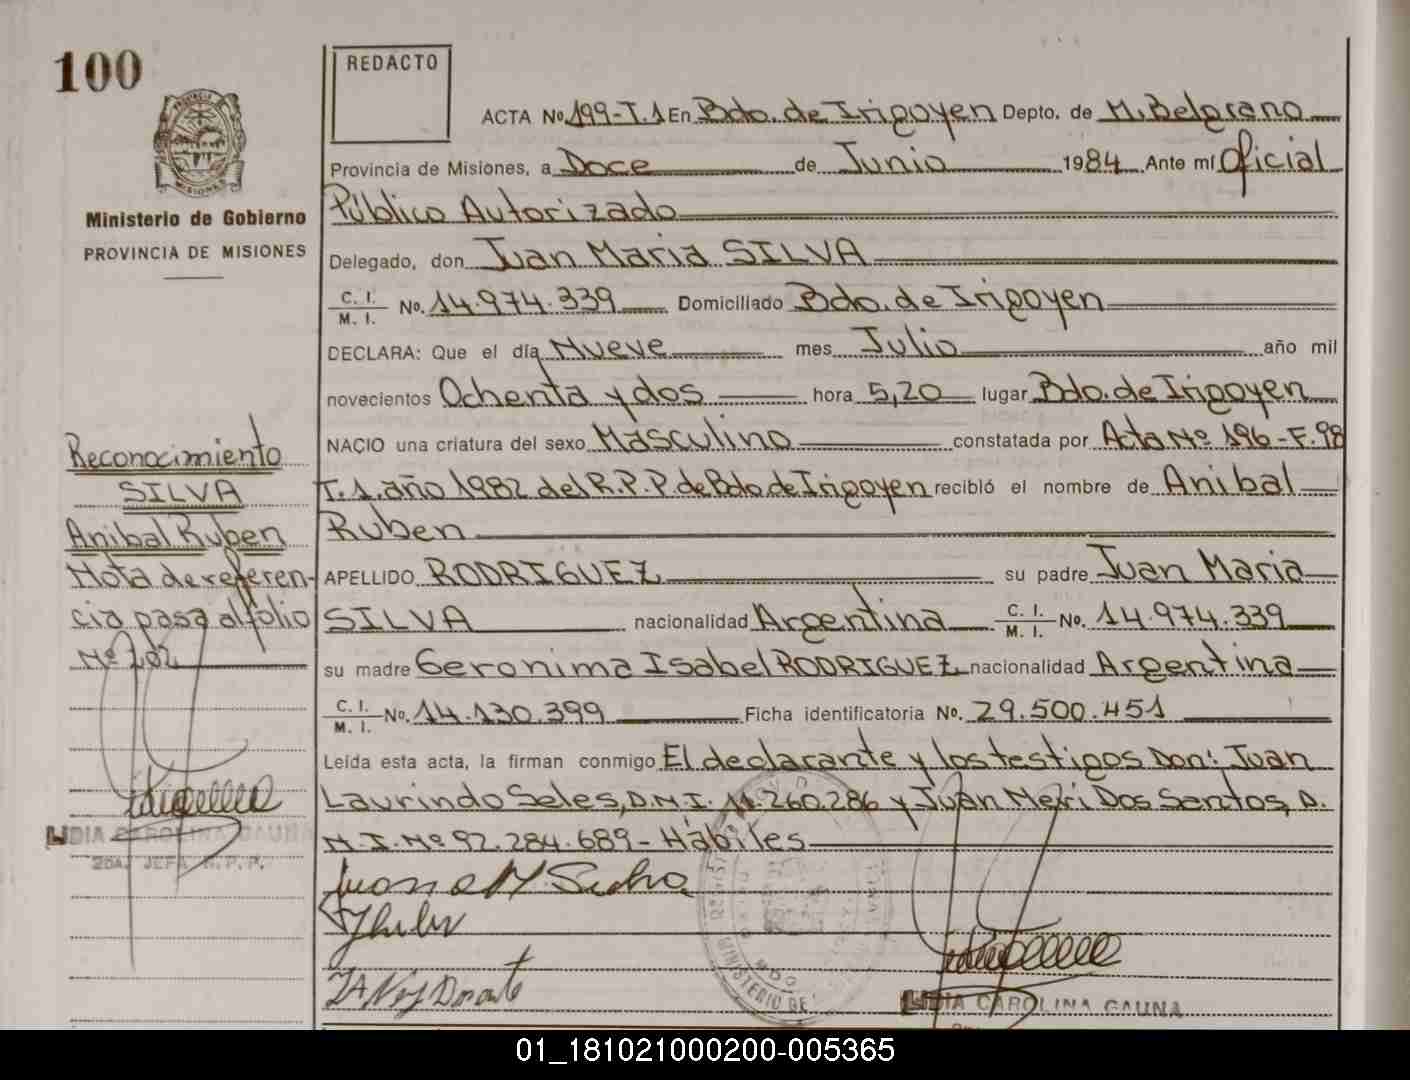 100
REDACTO
ACTA No 199-T.1 En Bdo. de Irigoyen Depto. de M. Belgrano
Provincia de Misiones, a Doce de Junio 1984 Ante mí Oficial
Público Autorizado
Delegado, don Juan Maria SILVA
C. I.
M. I. No. 14.974.339 Domiciliado Bdo. de Irigoyen
DECLARA: Que el día Nueve mes Julio año mil
novecientos Ochenta y dos hora 5,20 lugar Bdo. de Irigoyen
NACIO una criatura del sexo Masculino constatada por Acta Nº 196-F.98
T.1. año 1982 del R.P.P. de Bdo. de Irigoyen recibló el nombre de Anibal
Ruben
APELLIDO RODRIGUEZ su padre Juan Maria
SILVA nacionalidad Argentina C. I. M. I. No. 14.974.339
su madre Geronima Isabel RODRIGUEZ nacionalidad Argentina
C. I.
M. I. No. 14.130.399 Ficha identificatoria No. 29.500.451
Leída esta acta, la firman conmigo El declarante y los testigos Don: Juan
Laurindo Seles, D.N.I. 11.260.286 y Juan Meri Dos Santos, D.
N.I. Nº 92.284.689 - Hábiles
LIDIA CAROLINA GAUNA
PROVINCIA DE
MISIONES
Ministerio de Gobierno
PROVINCIA DE MISIONES
Reconocimiento
SILVA
Anibal Ruben
Nota de referen-
cia pasa al folio
Nº 202
LIDIA CAROLINA GAUNA
2DA. JEFA R.P.P.
MINISTERIO DE
01_181021000200-005365